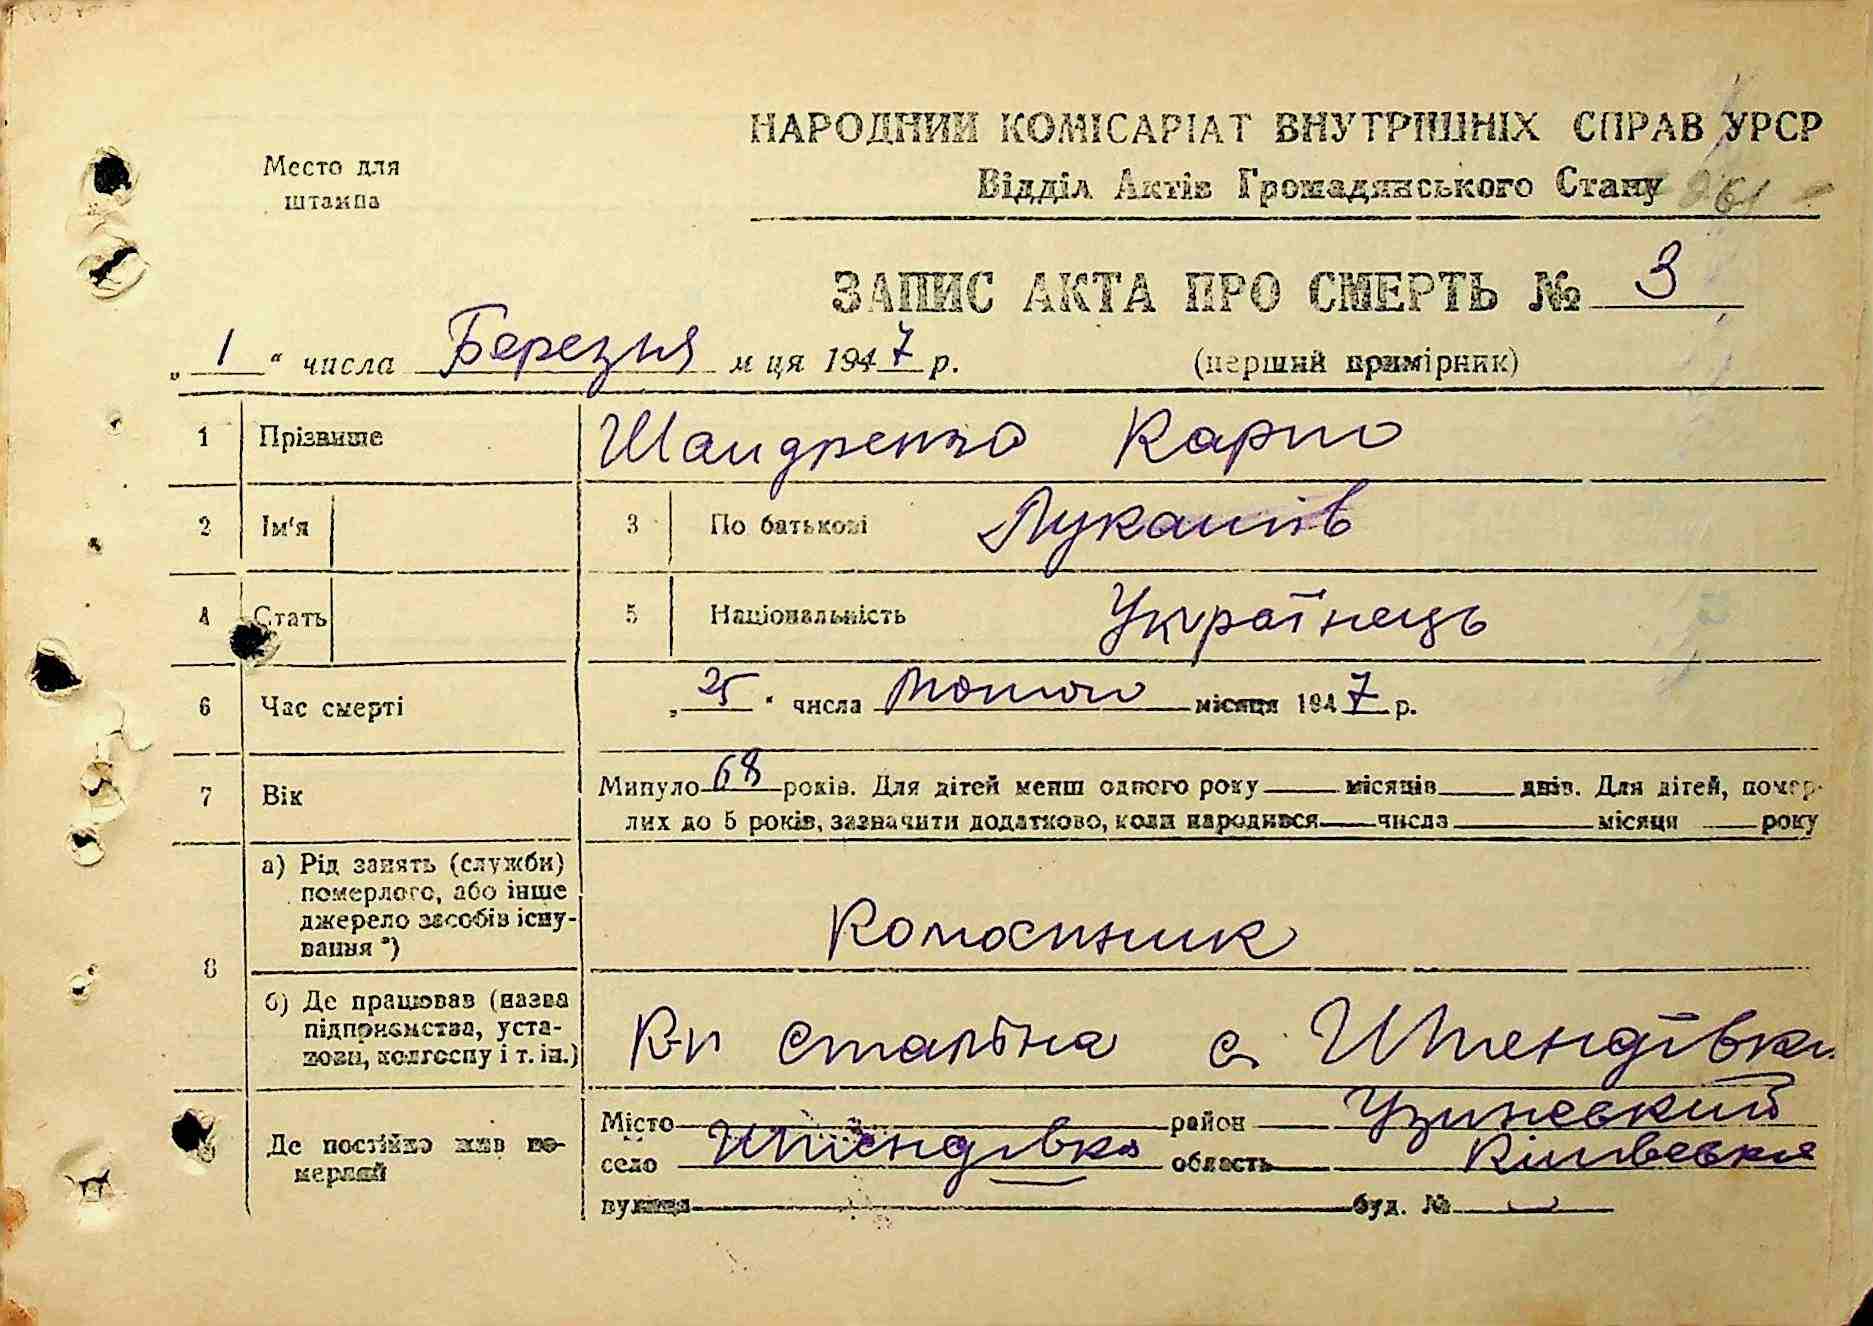 НАРОДНИЙ КОМІСАРІАТ ВНУТРІШНІХ СПРАВ УРСР
Место для штампа
Відділ Актів Громадянського Стану
261
ЗАПИС АКТА ПРО СМЕРТЬ № 3
„ 1 “ числа Березня м ця 1947 р. (перший примірник)
1 Прізвище Шандренко Карпо
2 Ім'я 3 По батькові Лукашів
4 Стать 5 Національність Українець
6 Час смерті „ 25 “ числа Лютого місяця 1947 р.
7 Вік Минуло 68 років. Для дітей менш одного року місяців днів. Для дітей, помер-
лих до 5 років, зазначити додатково, коли народився числа місяця року
8 а) Рід занять (служби)
померлого, або інше
джерело засобів існу-
вання *)
Колоспник
б) Де працював (назва
підприємства, уста-
нови, колгоспу і т. ін.)
К-п Сталіна с. Шпендівка
Де постійно жив по-
мерлий
Місто район Узинський
село Шпендівка область Київська
вулиця буд. №